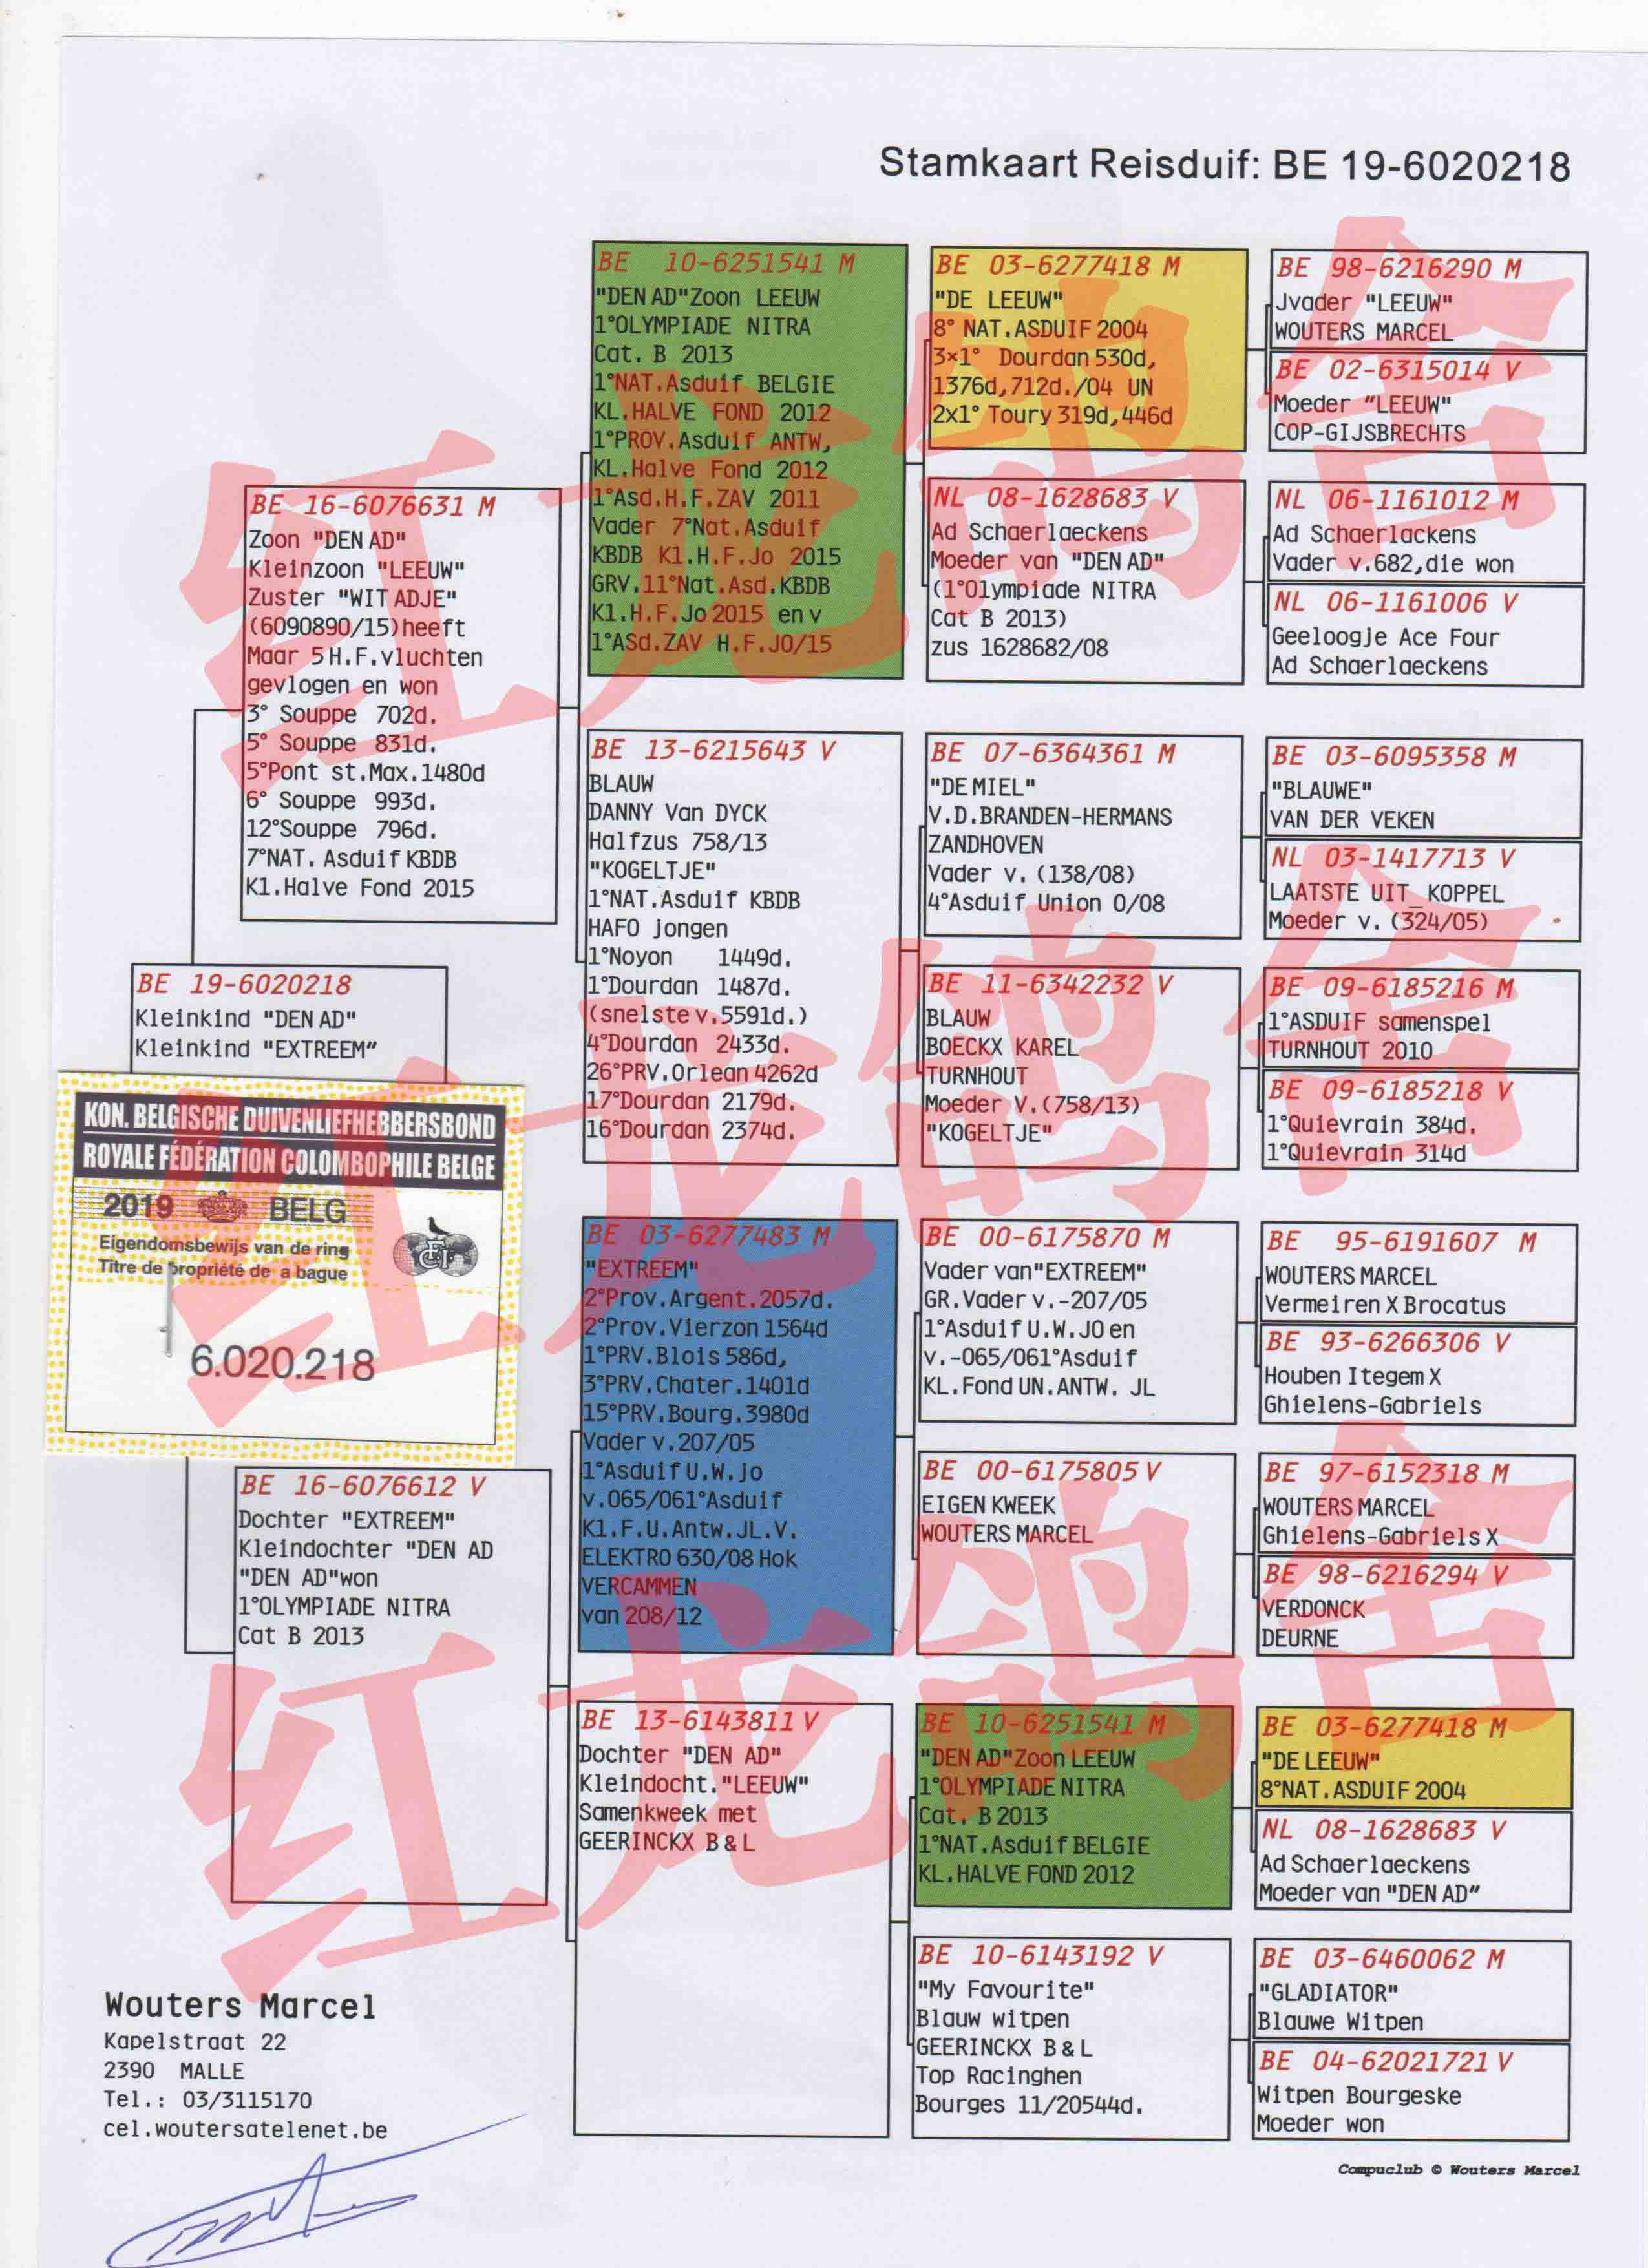 Stamkaart Reisduif: BE 19-6020218
BE 10-6251541 M
"DEN AD"Zoon LEEUW
1°OLYMPIADE NITRA
Cat. B 2013
1°NAT.Asduif BELGIE
KL.HALVE FOND 2012
1°PROV.Asduif ANTW,
KL.Halve Fond 2012
1°Asd.H.F.ZAV 2011
Vader 7°Nat.Asduif
KBDB Kl.H.F.Jo 2015
GRV.11°Nat.Asd.KBDB
Kl.H.F.Jo 2015 en v
1°ASd.ZAV H.F.JO/15
BE 03-6277418 M
"DE LEEUW"
8° NAT.ASDUIF 2004
3×1° Dourdan 530d,
1376d,712d./04 UN
2x1° Toury 319d,446d
BE 98-6216290 M
Jvader "LEEUW"
WOUTERS MARCEL
BE 02-6315014 V
Moeder "LEEUW"
COP-GIJSBRECHTS
NL 08-1628683 V
Ad Schaerlaeckens
Moeder van "DEN AD"
(1°Olympiade NITRA
Cat B 2013)
zus 1628682/08
NL 06-1161012 M
Ad Schaerlackens
Vader v.682,die won
NL 06-1161006 V
Geeloogje Ace Four
Ad Schaerlaeckens
BE 16-6076631 M
Zoon "DEN AD"
Kleinzoon "LEEUW"
Zuster "WIT ADJE"
(6090890/15)heeft
Maar 5H.F.vluchten
gevlogen en won
3° Souppe 702d.
5° Souppe 831d.
5°Pont st.Max.1480d
6° Souppe 993d.
12°Souppe 796d.
7°NAT. Asduif KBDB
Kl.Halve Fond 2015
BE 13-6215643 V
BLAUW
DANNY Van DYCK
Halfzus 758/13
"KOGELTJE"
1°NAT.Asduif KBDB
HAFO jongen
1°Noyon 1449d.
1°Dourdan 1487d.
(snelste v.5591d.)
4°Dourdan 2433d.
26°PRV.Orlean 4262d
17°Dourdan 2179d.
16°Dourdan 2374d.
BE 07-6364361 M
"DE MIEL"
V.D.BRANDEN-HERMANS
ZANDHOVEN
Vader v. (138/08)
4°Asduif Union O/08
BE 03-6095358 M
"BLAUWE"
VAN DER VEKEN
NL 03-1417713 V
LAATSTE UIT KOPPEL
Moeder v. (324/05)
BE 11-6342232 V
BLAUW
BOECKX KAREL
TURNHOUT
Moeder V.(758/13)
"KOGELTJE"
BE 09-6185216 M
1°ASDUIF samenspel
TURNHOUT 2010
BE 09-6185218 V
1°Quievrain 384d.
1°Quievrain 314d
BE 19-6020218
Kleinkind "DEN AD"
Kleinkind "EXTREEM"
KON. BELGISCHE DUIVENLIEFHEBBERSBOND
ROYALE FÉDÉRATION COLOMBOPHILE BELGE
2019 BELG
Eigendomsbewijs van de ring
Titre de propriété de a bague
6.020.218
BE 03-6277483 M
"EXTREEM"
2°Prov.Argent.2057d.
2°Prov.Vierzon 1564d
1°PRV.Blois 586d,
3°PRV.Chater.1401d
15°PRV.Bourg.3980d
Vader v.207/05
1°Asduif U.W.Jo
v.065/061°Asduif
Kl.F.U.Antw.JL.V.
ELEKTRO 630/08 Hok
VERCAMMEN
van 208/12
BE 00-6175870 M
Vader van"EXTREEM"
GR.Vader v.-207/05
1°Asduif U.W.JO en
v.-065/061°Asduif
KL.Fond UN.ANTW. JL
BE 95-6191607 M
WOUTERS MARCEL
Vermeiren X Brocatus
BE 93-6266306 V
Houben Itegem X
Ghielens-Gabriels
BE 00-6175805 V
EIGEN KWEEK
WOUTERS MARCEL
BE 97-6152318 M
WOUTERS MARCEL
Ghielens-Gabriels X
BE 98-6216294 V
VERDONCK
DEURNE
BE 16-6076612 V
Dochter "EXTREEM"
Kleindochter "DEN AD
"DEN AD"won
1°OLYMPIADE NITRA
Cat B 2013
BE 13-6143811 V
Dochter "DEN AD"
Kleindocht."LEEUW"
Samenkweek met
GEERINCKX B & L
BE 10-6251541 M
"DEN AD"Zoon LEEUW
1°OLYMPIADE NITRA
Cat. B 2013
1°NAT.Asduif BELGIE
KL.HALVE FOND 2012
BE 03-6277418 M
"DE LEEUW"
8°NAT.ASDUIF 2004
NL 08-1628683 V
Ad Schaerlaeckens
Moeder van "DEN AD"
BE 10-6143192 V
"My Favourite"
Blauw witpen
GEERINCKX B & L
Top Racinghen
Bourges 11/20544d.
BE 03-6460062 M
"GLADIATOR"
Blauwe Witpen
BE 04-62021721 V
Witpen Bourgeske
Moeder won
Wouters Marcel
Kapelstraat 22
2390 MALLE
Tel.: 03/3115170
cel.woutersatelenet.be
Compuclub © Wouters Marcel
红龙鸽舍
红龙鸽舍
红龙鸽舍